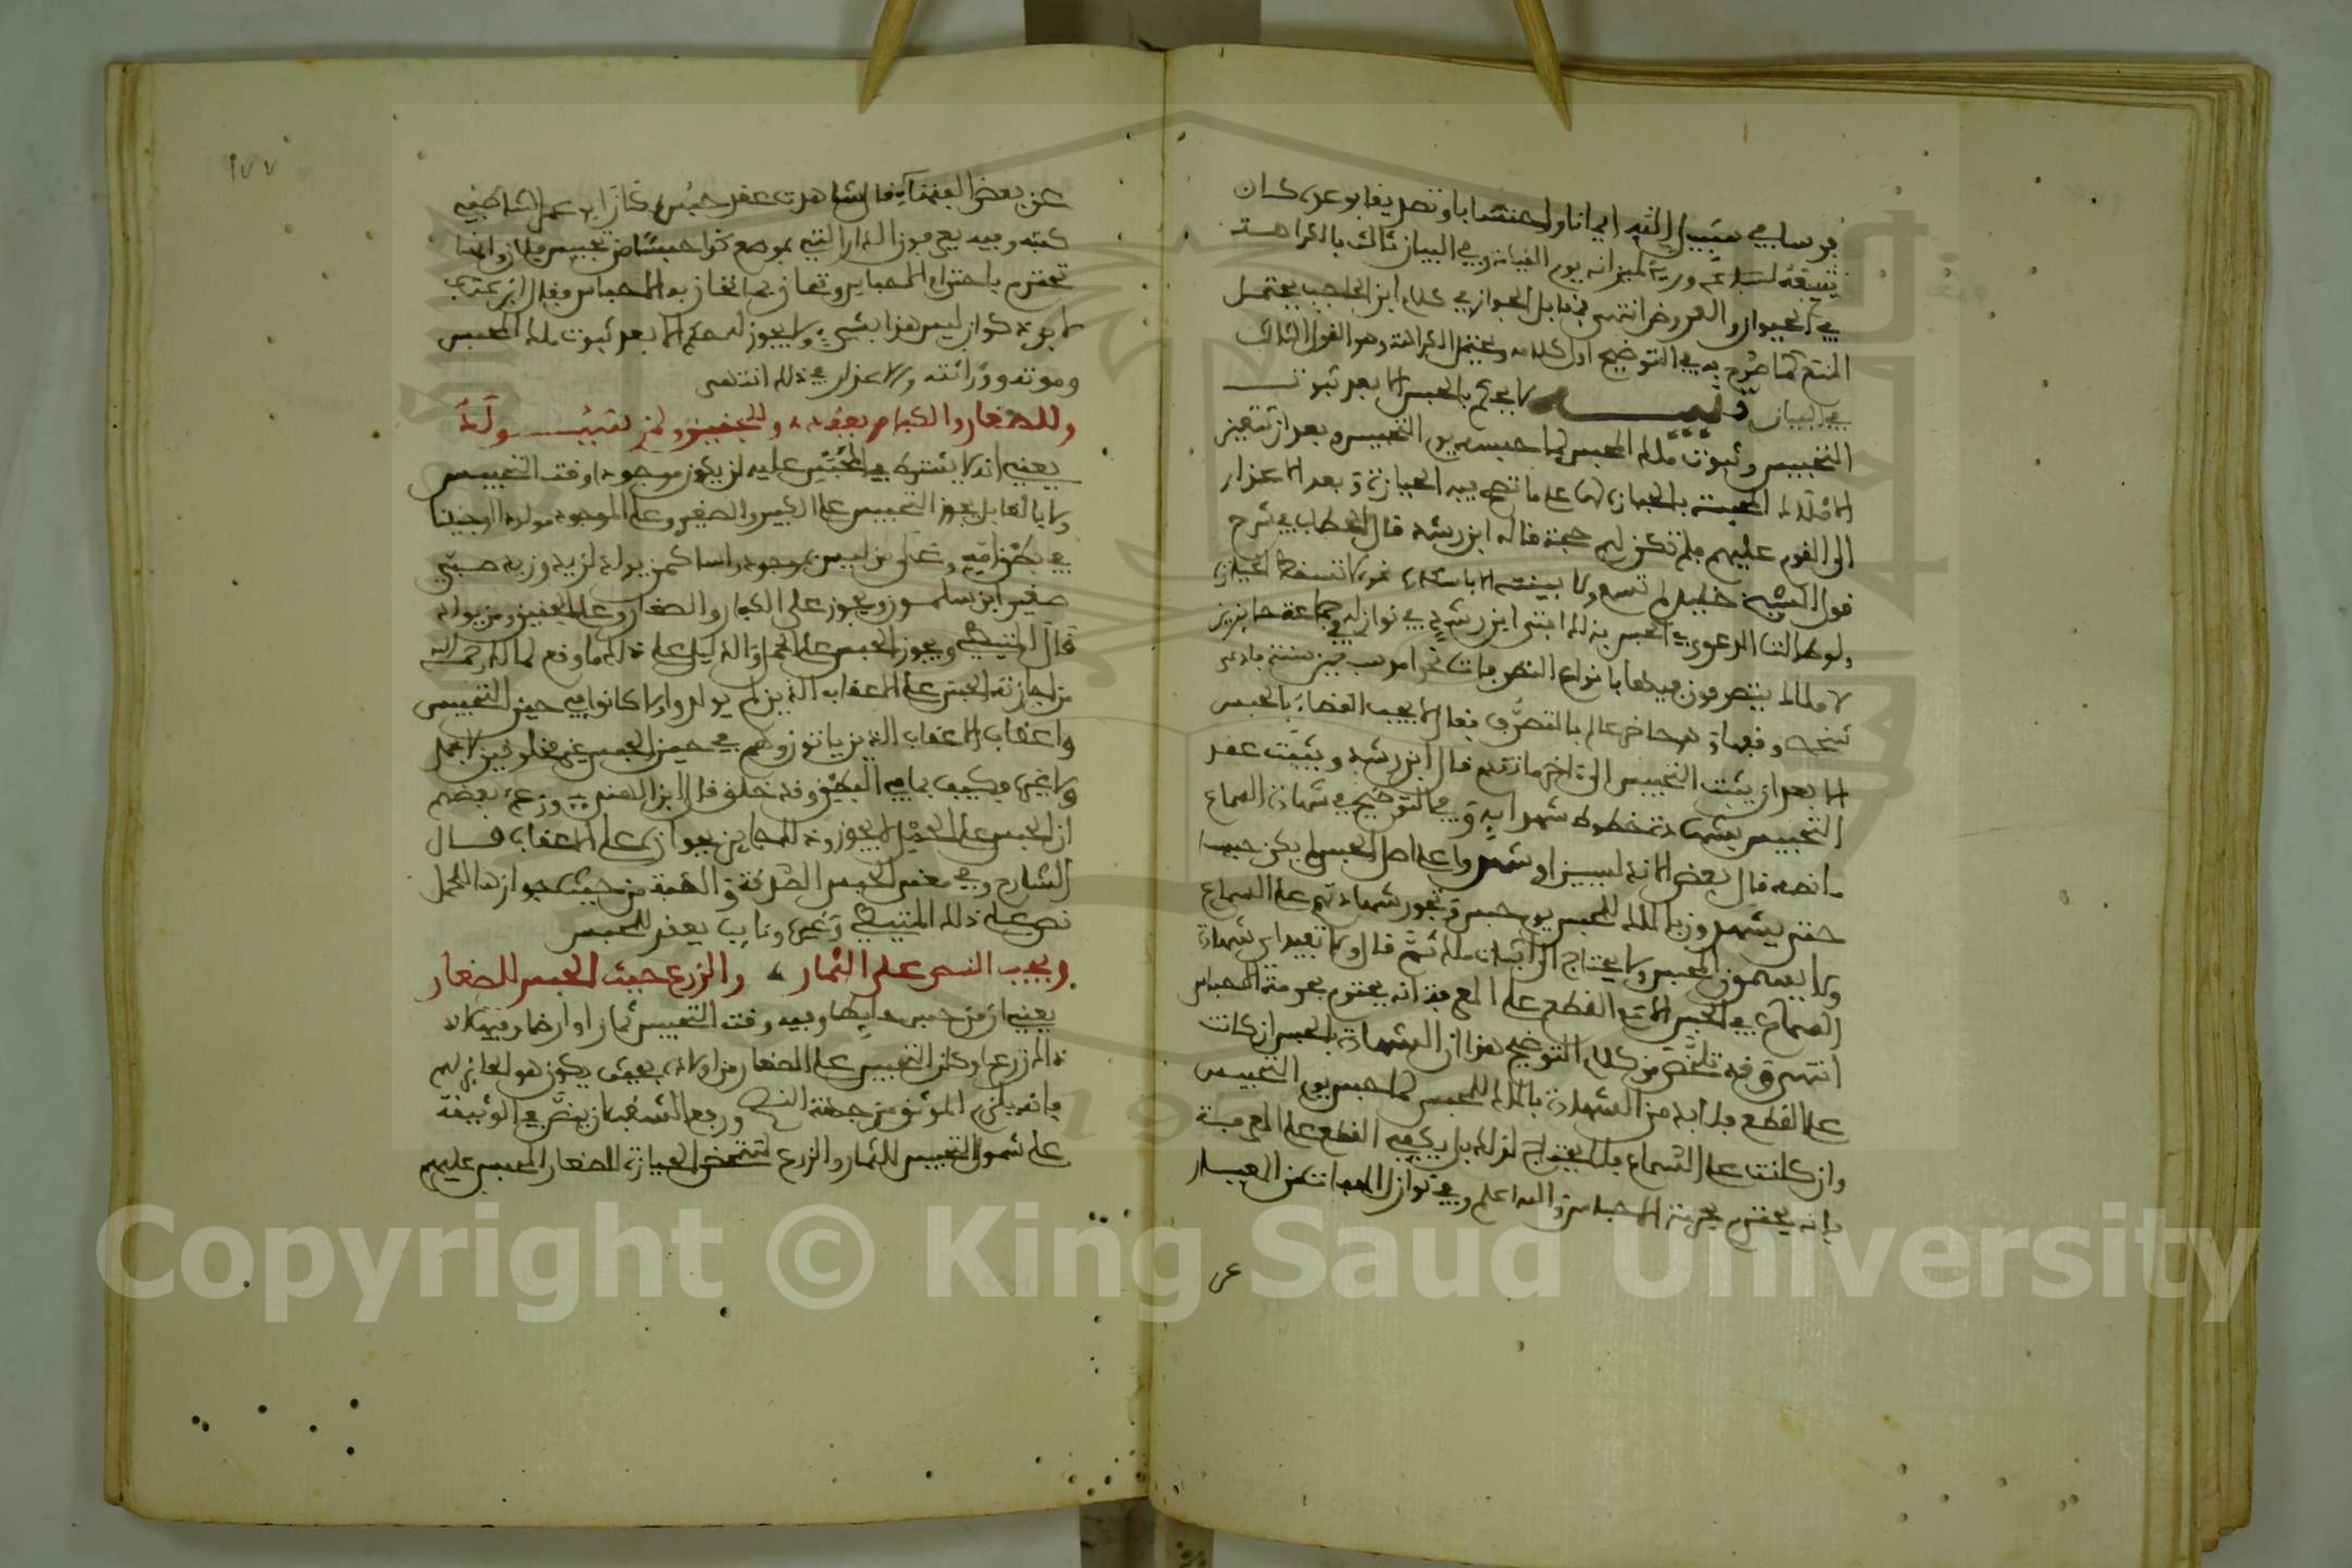 فرسا في سبيل الله ايمانا واحتسابا وتصديقا بوعده كان
شبعه وريه في ميزانه يوم القيامة وفي البيان ثالث بالكراهة
في الحيوان والعروض انتهى فمقابل الجواز في كلام ابن الحاجب يحتمل
المنع كما صرح به في التوضيح اول كلامه ويحتمل الكراهة وهو القول الثالث
في البيان تنبيه لا يحكم بالحبس الا بعد ثبوت
التحبيس وثبوت ملك المحبس لما حبسه يوم التحبيس وبعد ان تتعين
الاملاك المحبسة بالحيازة لها على ما تصح فيه الحيازة وبعد الاعذار
الى القوم عليهم فلم تكن لهم حجة قاله ابن رشد قال الحطاب في شرح
قول الشيخ خليل لم تسمع ولا بينته الا باسكان ونحوه
ولو طالت الدعوى في الحبس بذلك افتى ابن رشد في نوازله في جماعة حايزين
لاملاك يتصرفون فيها بانواع التصرف
الا بعد ان يثبت التحبيس الى اخر ما تقدم قال ابن رشد ويثبت عقد
التحبيس بشهادة خطوط شهدايه وفي التوضيح في شهادة السماع
ما نصه قال بعض الاندلسيين لو شهدوا على اصل الحبس لم يكن حبسا
حتى يشهدون بالملك للمحبس يوم حبس وتجوز شهادتهم على السماع
ولا يسمون المحبس ولا يحتاج الى اثبات ملكه ثم قال ولا تفيد شهادة
السماع في الحبس الا مع القطع على المعرفة انه يحترم بحرمة الاحباس
انتهى وقد تلخص من كلام التوضيح هذا ان الشهادة بالحبس ان كانت
على القطع فلا بد من الشهادة بالملك للمحبس لما حبس يوم التحبيس
وان كانت على السماع فلا يحتاج لذلك بل يكفي القطع على المعرفة
بانه يحترم بحرمة الاحباس والله اعلم وفي نوازل الهبات من المعيار
عن
١٧٧
عن بعض الفقهاء قال شاهدت عقد حبس
كتبه وفيه يعرفون الدار التي بموضع كذا حبسا من تحبيس فلان وانها
تحترم باحترام الاحباس وتحاز بما تحاز به الاحباس وقال ابن عتاب
ليس هذا بشيء ولا يجوز له حكم الا بعد ثبوت ملك المحبس
وموته ووراثته والاعذار في ذلك انتهى
وللصغار والكبار يعقد وللجنين ولمن سيولد
يعني انه لا يشترط في المحبس عليه ان يكون موجودا وقت التحبيس
ولا بالغا بل يجوز التحبيس على الكبير والصغير وعلى الموجود مولودا او جنينا
في بطن امه وعلى من ليس بموجود راسا كمن يولد لزيد وزيد صبي
صغير ابن سلمون ويجوز على الكبار والصغار وعلى الجنين ومن يولد
قال المتيطي ويجوز الحبس على الحمل والدليل على ذلك ما وقع لمالك رحمه الله
من اجازته الحبس على الاعقاب الذين لم يولدوا ولا كانوا في حين التحبيس
واعقاب الاعقاب الذين ياتون وهم في حين الحبس غير مخلوقين لا حمل
ولا غيره فكيف بما في البطن وقد خلق قال ابن الهندي وزعم بعضهم
ان الحبس على الحمل لا يجوز والمجايز بجوازه على الاعقاب قال
الشارح وفي معنى الحبس الصدقة والهبة من حيث جوازها للحمل
نص على ذلك المتيطي وغيره ونايب يعقد للحبس
ويجب النص على الثمار والزرع حيث الحبس للصغار
يعني ان من حبس حايطا وفيه وقت التحبيس ثمار او ارضا وفيها اذ
ذاك زرع وكان التحبيس على الصغار من اولاده بحيث يكون هو الحايز لهم
فانه يلزم الموثق من جهة النصح ورفع الشغب ان ينص في الوثيقة
على شمول التحبيس للثمار والزرع لتتمحض الحيازة للصغار المحبس عليهم
Copyright © King Saud University